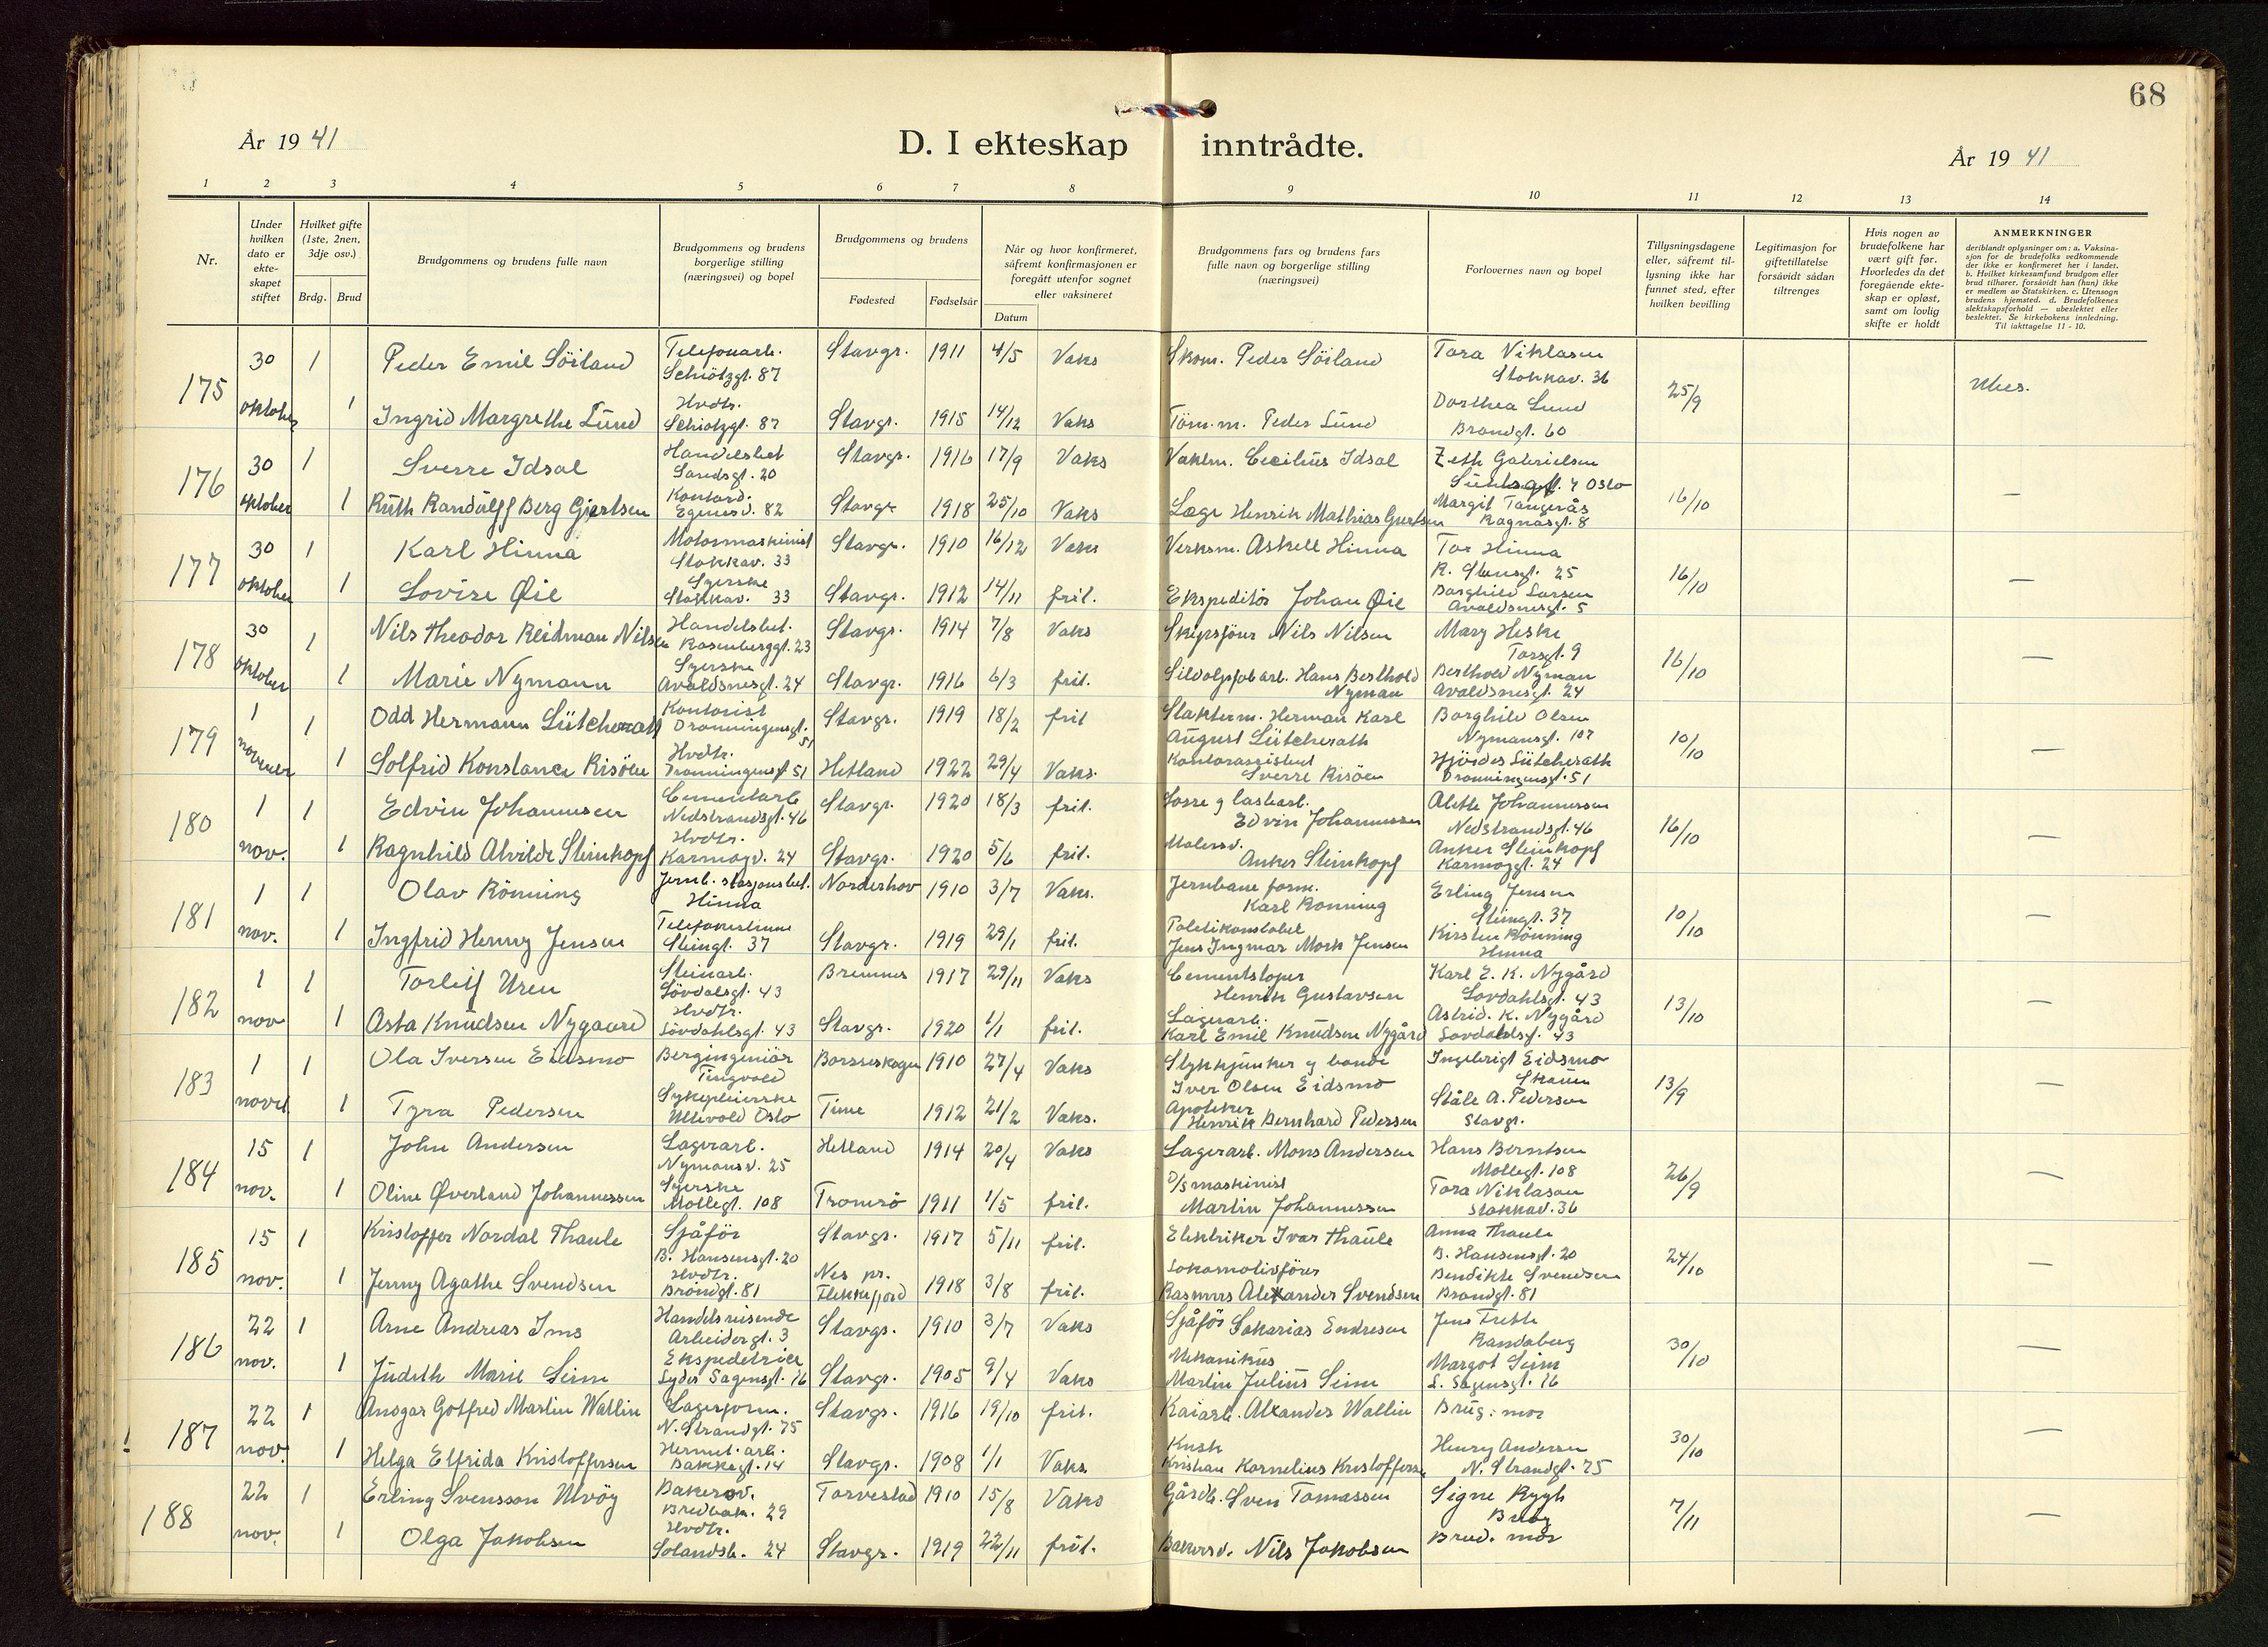 68
År 1941
D. I ekteskap inntrådte.
År 1941
1 2 3 4 5 6 7 8 9 10 11 12 13 14
Nr.
Under hvilken dato er ekte-skapet stiftet
Hvilket gifte (1ste, 2nen, 3dje osv.)
Brdg. Brud
Brudgommens og brudens fulle navn
Brudgommens og brudens borgerlige stilling (næringsvei) og bopel
Brudgommens og brudens
Fødested Fødselsår
Når og hvor konfirmeret, såfremt konfirmasjonen er foregått utenfor sognet eller vaksineret
Datum
Brudgommens fars og brudens fars fulle navn og borgerlige stilling (næringsvei)
Forlovernes navn og bopel
Tillysningsdagene eller, såfremt til-lysning ikke har funnet sted, efter hvilken bevilling
Legitimasjon for giftetillatelse forsåvidt sådan tiltrenges
Hvis nogen av brudefolkene har vært gift før. Hvorledes da det foregående ekte-skap er opløst, samt om lovlig skifte er holdt
ANMERKNINGER
deriblandt oplysninger om: a. Vaksina-sjon for de brudefolks vedkommende der ikke er konfirmeret her i landet. b. Hvilket kirkesamfund brudgom eller brud tilhører, forsåvidt han (hun) ikke er medlem av Statskirken. c. Utensogn brudens hjemsted. d. Brudefolkenes slektskapsforhold — ubeslektet eller beslektet. Se kirkebokens innledning. Til iakttagelse 11 - 10.
175 30 oktober 1 Peder Emil Söiland Telefonarb. Schiötzgt. 87 Stavgr. 1911 4/5 Vaks Skom. Peder Söiland Tora Niklasen Stokkav. 36 25/9 Ubes.
1 Ingrid Margrethe Lund Hvdtr. Schiötzgt. 87 Stavgr. 1915 14/12 Vaks Töm.m. Peder Lund Dorthea Lund Brondgt. 60
176 30 oktober 1 Sverre Idsal Handelsbet Sandsgt. 20 Stavgr. 1916 17/9 Vaks Vaktm. Cecilius Idsal Zeth Gabrielsen Oslo 16/10 —
1 Ruth Randulff Berg Gjertsen Kontord. Egenesv. 82 Stavgr 1918 25/10 Vaks Læge Henrik Mathias Gjertsen Margit Tangerås Ragnasgt. 8
177 30 oktober 1 Karl Hinna Motormaskinist Stokkav. 33 Stavgr. 1910 16/12 Vaks Verksm. Askell Hinna Tor Hinna R. Stensgt. 25 16/10 —
1 Lovise Øie Syerske Stokkav. 33 Stavgr. 1912 14/11 fril. Ekspeditör Johan Øie Borghild Larsen Avaldsnesgt. 5
178 30 oktober 1 Nils Theodor Reidman Nilsen Handelsbet. Rosenberggt. 23 Stavgr. 1914 7/8 Vaks Skipsförer Nils Nilsen Mary Heske Torsgt. 9 16/10 —
1 Marie Nymann Syerske Avaldsnesgt. 24 Stavgr. 1916 6/3 fril. Sildoljefab arb. Hans Berthold Nyman Berthold Nyman Avaldsnesgt. 24
179 1 november 1 Odd Hermann Lütcherath Kontorist Dronningensgt. 51 Stavgr. 1919 18/2 fril Slakterm. Herman Karl August Lütcherath Borghild Olsen Nymansgt. 107 10/10 —
1 Solfrid Konstance Risöen Hvdtr. Dronningensgt 51 Hetland 1922 29/4 Vaks. Kontorassistent Sverre Risöen Hjördis Lütcherath Dronningensgt. 51
180 1 nov. 1 Edvin Johannesen Cementarb Nedstrandsgt. 46 Stavgr. 1920 18/3 fril. Losse og lastearb. Edvin Johannessen Alette Johannessen Nedstrandsgt. 46 16/10 —
1 Ragnhild Alvilde Steinkopf Hvdtr. Karmøyv. 24 Stavgr. 1920 5/6 fril. Malersv. Anker Steinkopf Anker Steinkopf Karmøygt. 24
181 1 nov. 1 Olav Rönning Jernb. stasjonsbet. Hinna Norderhov 1910 3/7 Vaks. Jernbane form. Karl Rönning Erling Jensen Steingt. 37 10/10 —
1 Ingfrid Henny Jensen Telefonistinne Steingt. 37 Stavgr. 1919 29/1 fril. Politikonstabel Jens Ingmar Mork Jensen Kirsten Rönning Hinna
182 1 nov 1 Torleif Uren Steinarb. Lövdalsgt. 43 Bremnes 1917 29/11 Vaks Cementstöper Henrik Gustavsen Karl E. K. Nygård Lovdahlsgt. 43 13/10 —
1 Asta Knudsen Nygaard Hvdtr. Lövdahlsgt. 43 Stavgr. 1920 1/1 fril. Lagerarb. Karl Emil Knudsen Nygård Astrid. K. Nygård Lovdahlsgt. 43
183 1 novbr. 1 Ola Iversen Eidsmo Bergingeniör Tingvold 1910 27/4 Vaks Stykkjunker og bonde Iver Olsen Eidsmo Ingebrigt Eidsmo Skaun 13/9 —
1 Tyra Pedersen Sykepleierske Ullevold Oslo Time 1912 21/2 Vaks. Apoteker Henrik Bernhard Pedersen Ståle A. Pedersen Stavgr.
184 15 nov. 1 John Andersen Lagerarb. Nymansv. 25 Hetland 1914 20/4 Vaks Lagerarb. Mons Andersen Hans Berntsen Möllegt. 108 26/9 —
1 Oline Øverland Johannessen Syerske Möllegt. 108 Tromsö 1911 1/5 fril. D/S maskinist Martin Johannessen Tora Niklasen Stokkav. 36
185 15 nov. 1 Kristoffer Nordal Thaule Sjåför B. Hansensgt. 20 Stavgr. 1917 5/11 fril. Elektriker Ivar Thaule Anna Thaule B. Hansensgt. 20 24/10 —
1 Jenny Agathe Svendsen Hvdtr. Bröndgt. 81 Nes pr. Flekkefjord 1918 3/8 fril. Lokomotivförer Rasmus Alexander Svendsen Bendikte Svendsen Brøndgt. 81
186 22 nov. 1 Arne Andreas Ims Handelsreisende Arbeidergt. 3 Stavgr. 1910 3/7 Vaks Sjåför Sakarias Endresen Jens Tveth Randaberg 30/10 —
1 Judith Marie Seim Ekspeditrice Lyder Sagensgt. 16 Stavgr. 1905 9/4 Vaks Mekanikus Martin Julius Seim Margot Seim L. Sagensgt. 16
! 187 22 nov. 1 Ansgar Gotfred Martin Wallin Lagerform. N. Strandgt. 75 Stavgr. 1916 19/10 fril. Kaiarb. Alxander Wallin Brug: mor 30/10 —
1 Helga Elfrida Kristoffersen Hermet. arb. Bakkegt. 14 Stavgr. 1908 1/1 Vaks Kusk Kristian Kornelius Kristoffersen Henry Andersen N. Strandgt. 75
188 22 nov. 1 Erling Svensson Utvöy Bakersv. Bredbak. 29 Torvestad 1910 15/8 Vaks Gårdb. Sven Tomassen Signe Rygh 7/11 —
1 Olga Jakobsen Hvdtr. Solandsb. 24 Stavgr. 1919 22/11 fril. Bakersv. Nils Jakobsen Brud. mor